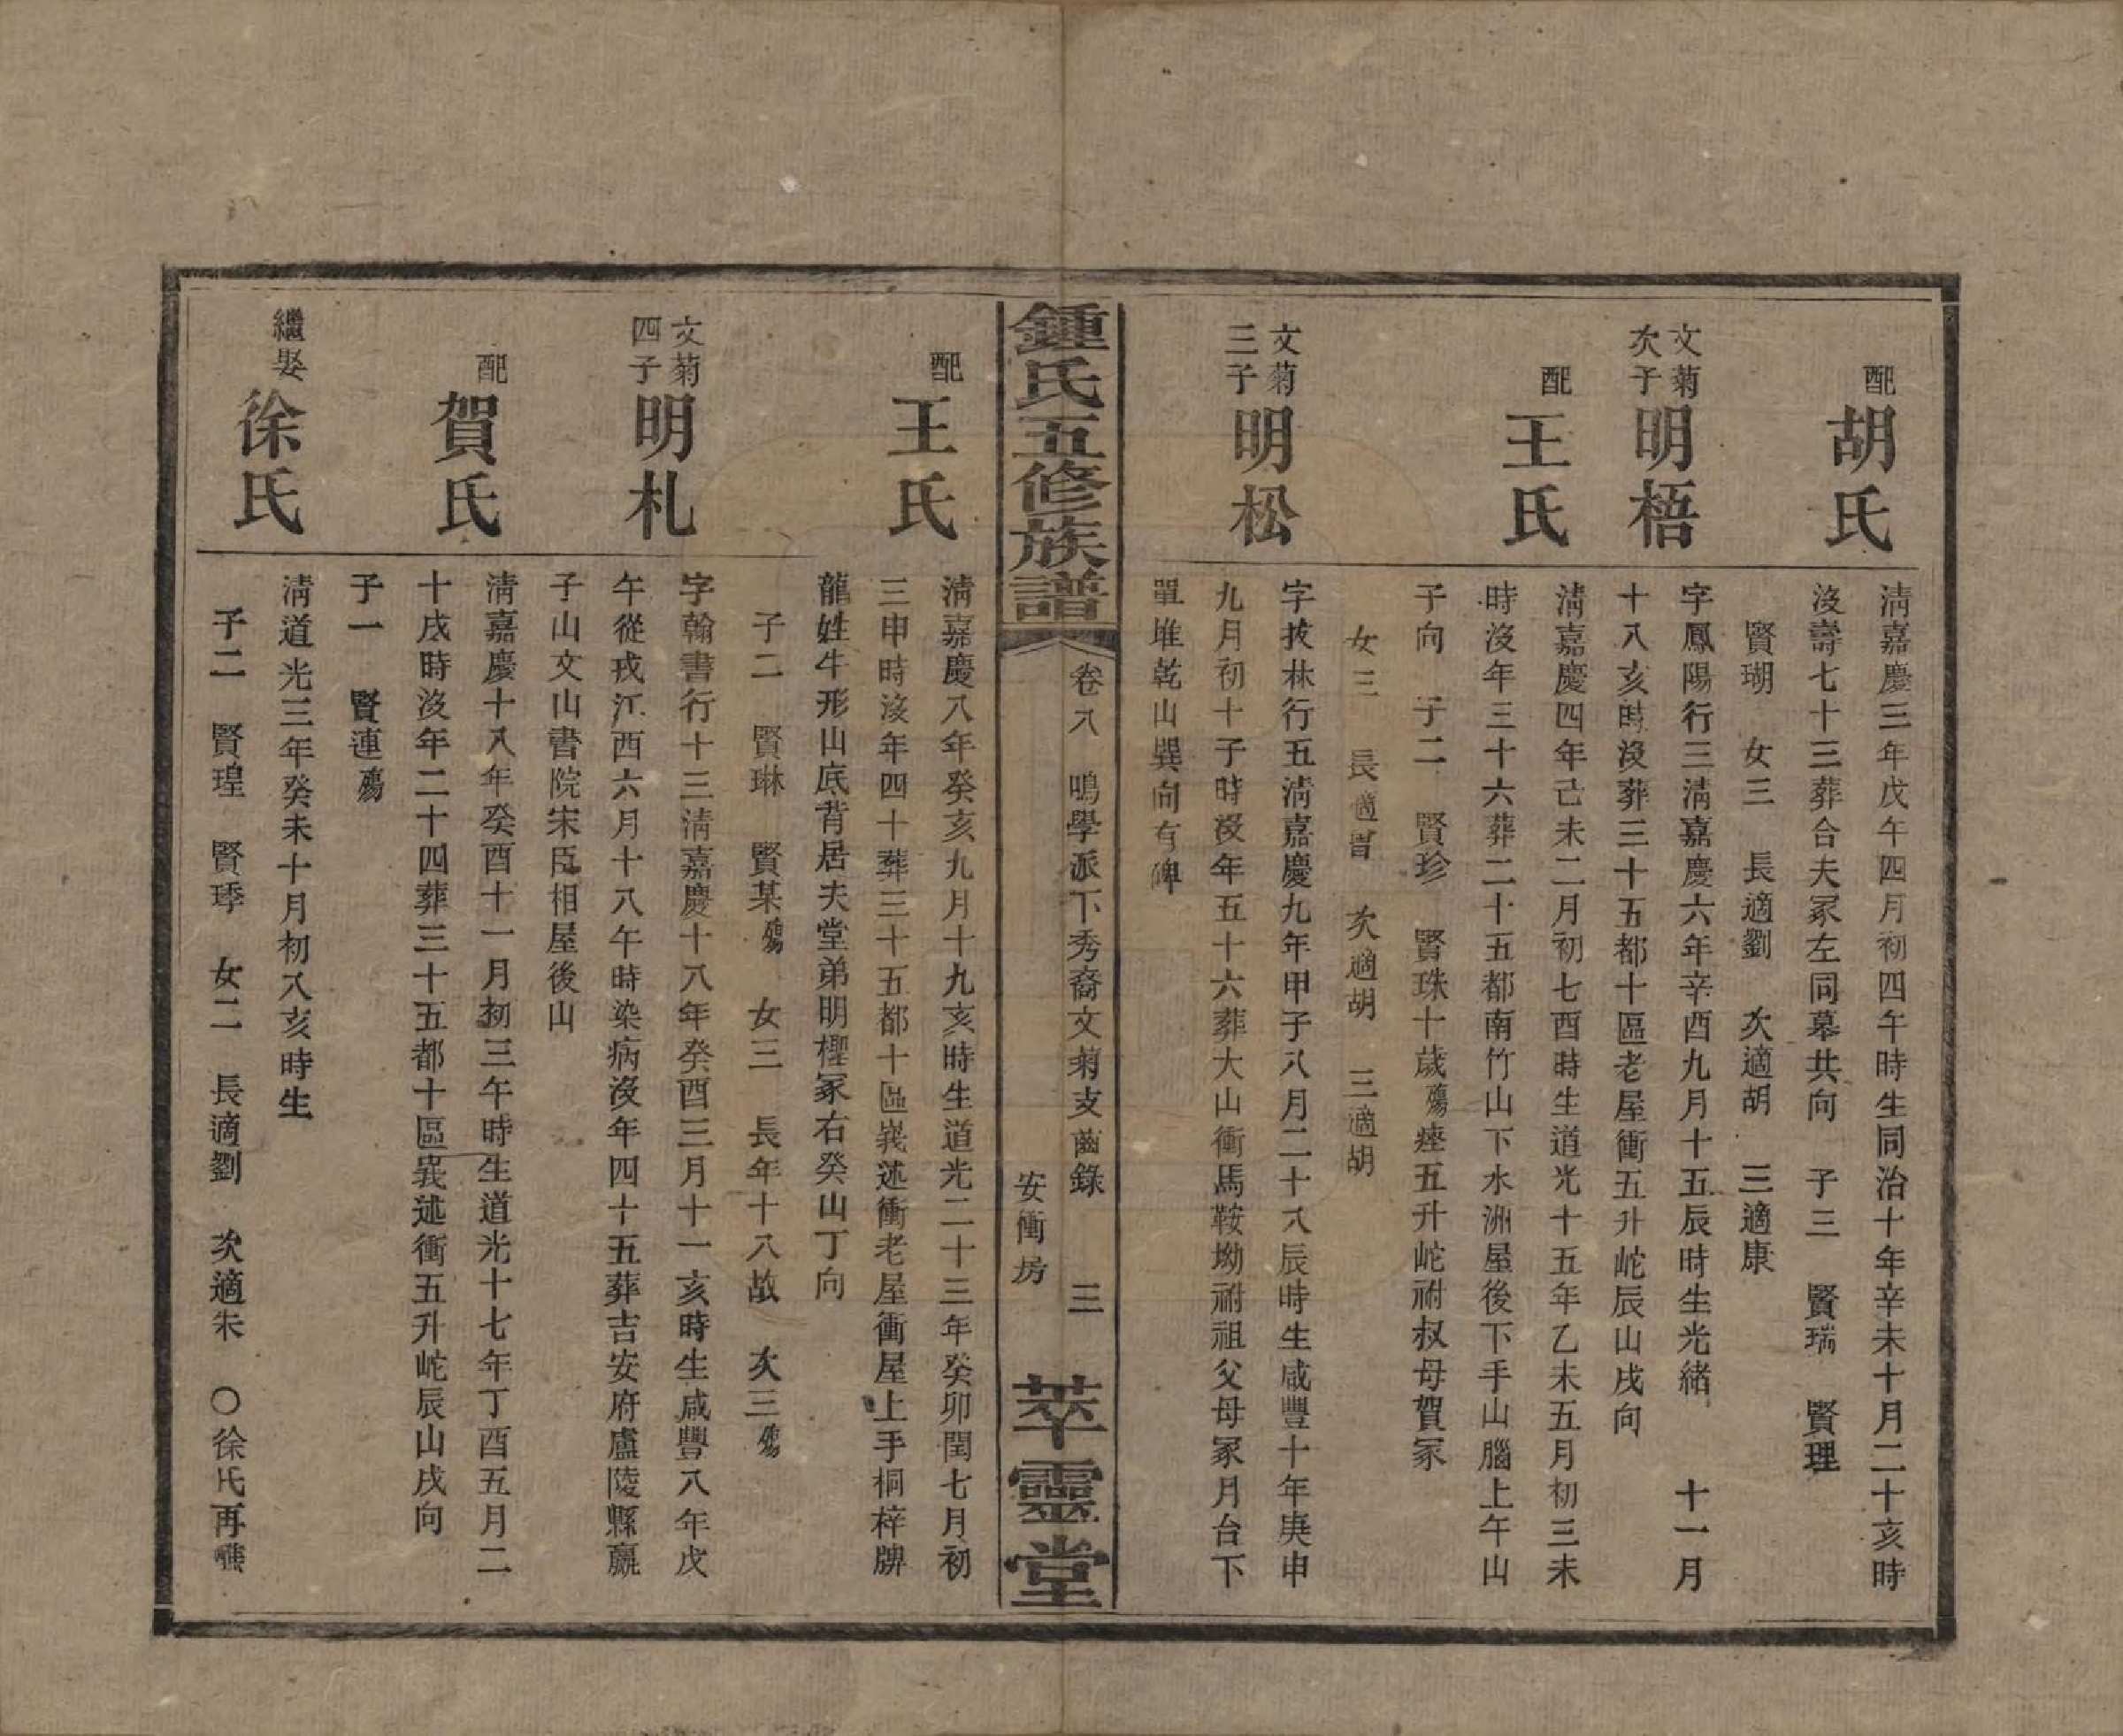 配
胡氏
淸嘉慶三年戊午四月初四午時生同治十年辛未十月二十亥時
沒壽七十三葬合夫冢左同墓共向　子三　賢瑞　賢理
賢瑚　女三　長適劉　次適胡　三適康
文菊
次子
明梧
字鳳陽行三淸嘉慶六年辛酉九月十五辰時生光緒　十一月
十八亥時沒葬三十五都十區老屋衝五升岮辰山戌向
配
王氏
淸嘉慶四年己未二月初七酉時生道光十五年乙未五月初三未
時沒年三十六葬二十五都南竹山下水洲屋後下手山腦上午山
子向　子二　賢珍　賢珠十歲殤瘞五升岮祔叔母賀冢
女三　長適　次適胡　三適胡
文菊
三子
明松
字拔林行五淸嘉慶九年甲子八月二十八辰時生咸豐十年庚申
九月初十子時沒年五十六葬大山衝馬鞍坳祔祖父母冢月台下
單堆乾山巽向有碑
鍾氏五修族譜
卷八　鳴學派下秀裔文菊支齒錄　三
安衝房
萃靈堂
配
王氏
淸嘉慶八年癸亥九月十九亥時生道光二十三年癸卯閏七月初
三申時沒年四十葬三十五都十區義述衝老屋衝屋上手桐梓牌
龍姓牛形山底背居夫堂弟明檉冢右癸山丁向
子二　賢琳　賢某殤　女三　長年十八故　次三殤
文菊
四子
明札
字翰書行十三淸嘉慶十八年癸酉三月十一亥時生咸豐八年戊
午從戎江西六月十八午時染病沒年四十五葬吉安府廬陵縣贏
子山文山書院宋臣相屋後山
配
賀氏
淸嘉慶十八年癸酉十一月初三午時生道光十七年丁酉五月二
十戌時沒年二十四葬三十五都十區義述衝五升岮辰山戌向
子一　賢連殤
繼娶
徐氏
淸道光三年癸未十月初八亥時生
子二　賢瑝　賢琫　女二　長適劉　次適朱　○徐氏再醮